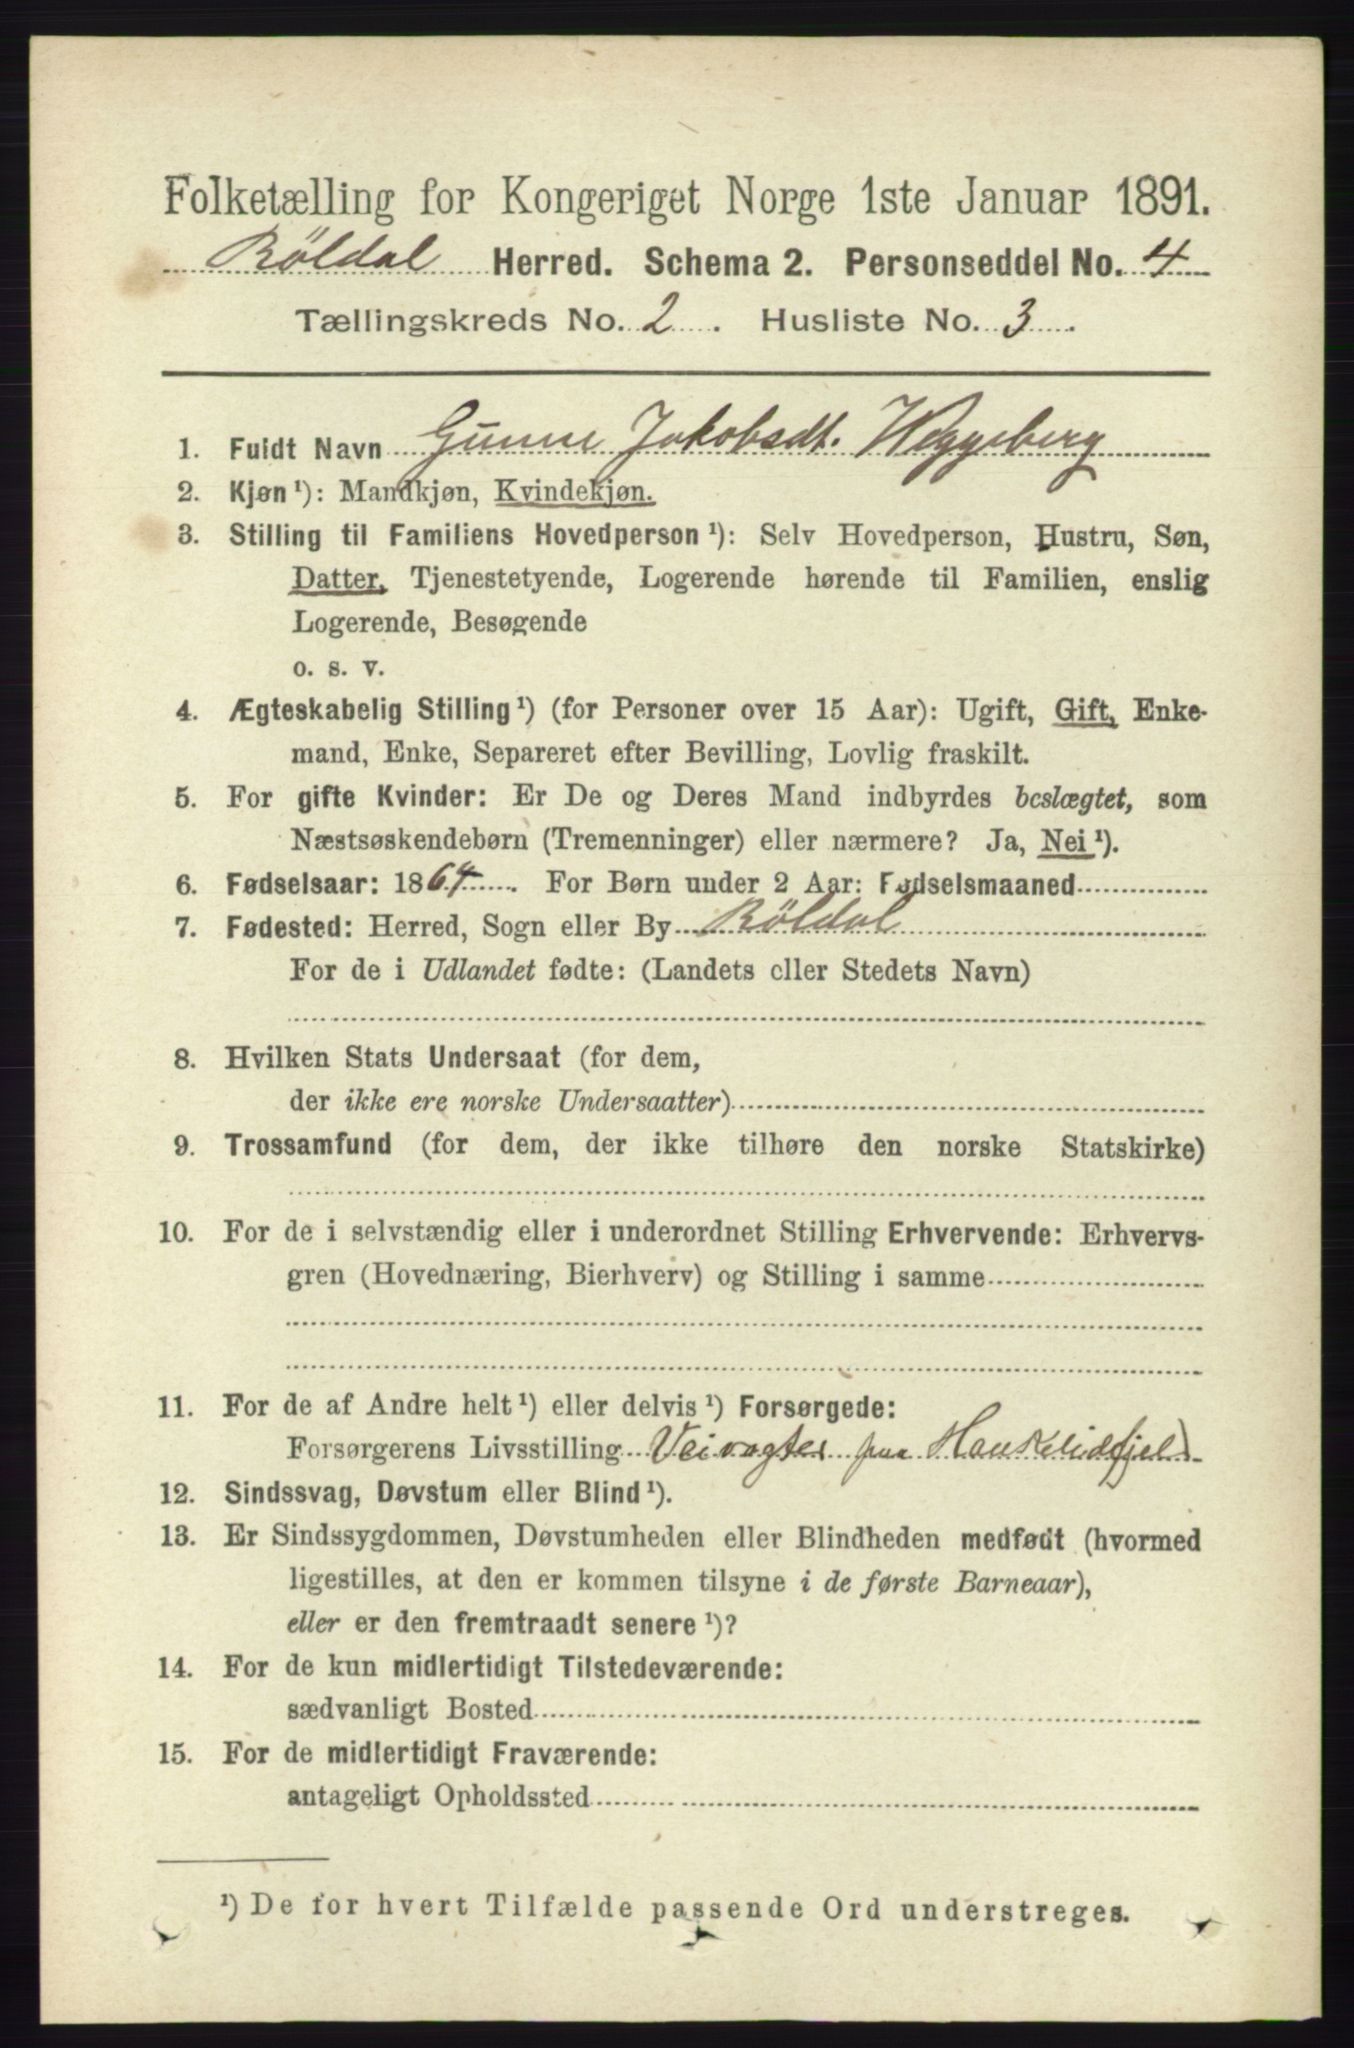 Folketælling for Kongeriget Norge 1ste Januar 1891.
Röldal Herred. Schema 2. Personseddel No. 4
Tællingskreds No. 2. Husliste No. 3.
1. Fuldt Navn Jakobsdt.
2. Kjøn ¹): Mandkjøn, Kvindekjøn.
3. Stilling til Familiens Hovedperson ¹): Selv Hovedperson, Hustru, Søn,
Datter, Tjenestetyende, Logerende hørende til Familien, enslig
Logerende, Besøgende
o. s. v.
4. Ægteskabelig Stilling ¹) (for Personer over 15 Aar): Ugift, Gift, Enke-
mand, Enke, Separeret efter Bevilling, Lovlig fraskilt.
5. For gifte Kvinder: Er De og Deres Mand indbyrdes beslægtet, som
Næstsøskendebørn (Tremenninger) eller nærmere? Ja, Nei ¹).
6. Fødselsaar: 1864. For Børn under 2 Aar: Fødselsmaaned
7. Fødested: Herred, Sogn eller By Röldal
For de i Udlandet fødte: (Landets eller Stedets Navn)
8. Hvilken Stats Undersaat (for dem,
der ikke ere norske Undersaatter)
9. Trossamfund (for dem, der ikke tilhøre den norske Statskirke)
10. For de i selvstændig eller i underordnet Stilling Erhvervende: Erhvervs-
gren (Hovednæring, Bierhverv) og Stilling i samme
11. For de af Andre helt ¹) eller delvis ¹) Forsørgede:
Forsørgerens Livsstilling Veivogter paa Haukelidfjeld
12. Sindssvag, Døvstum eller Blind ¹).
13. Er Sindssygdommen, Døvstumheden eller Blindheden medfødt (hvormed
ligestilles, at den er kommen tilsyne i de første Barneaar),
eller er den fremtraadt senere ¹)?
14. For de kun midlertidigt Tilstedeværende:
sædvanligt Bosted
15. For de midlertidigt Fraværende:
antageligt Opholdssted
¹) De for hvert Tilfælde passende Ord understreges.